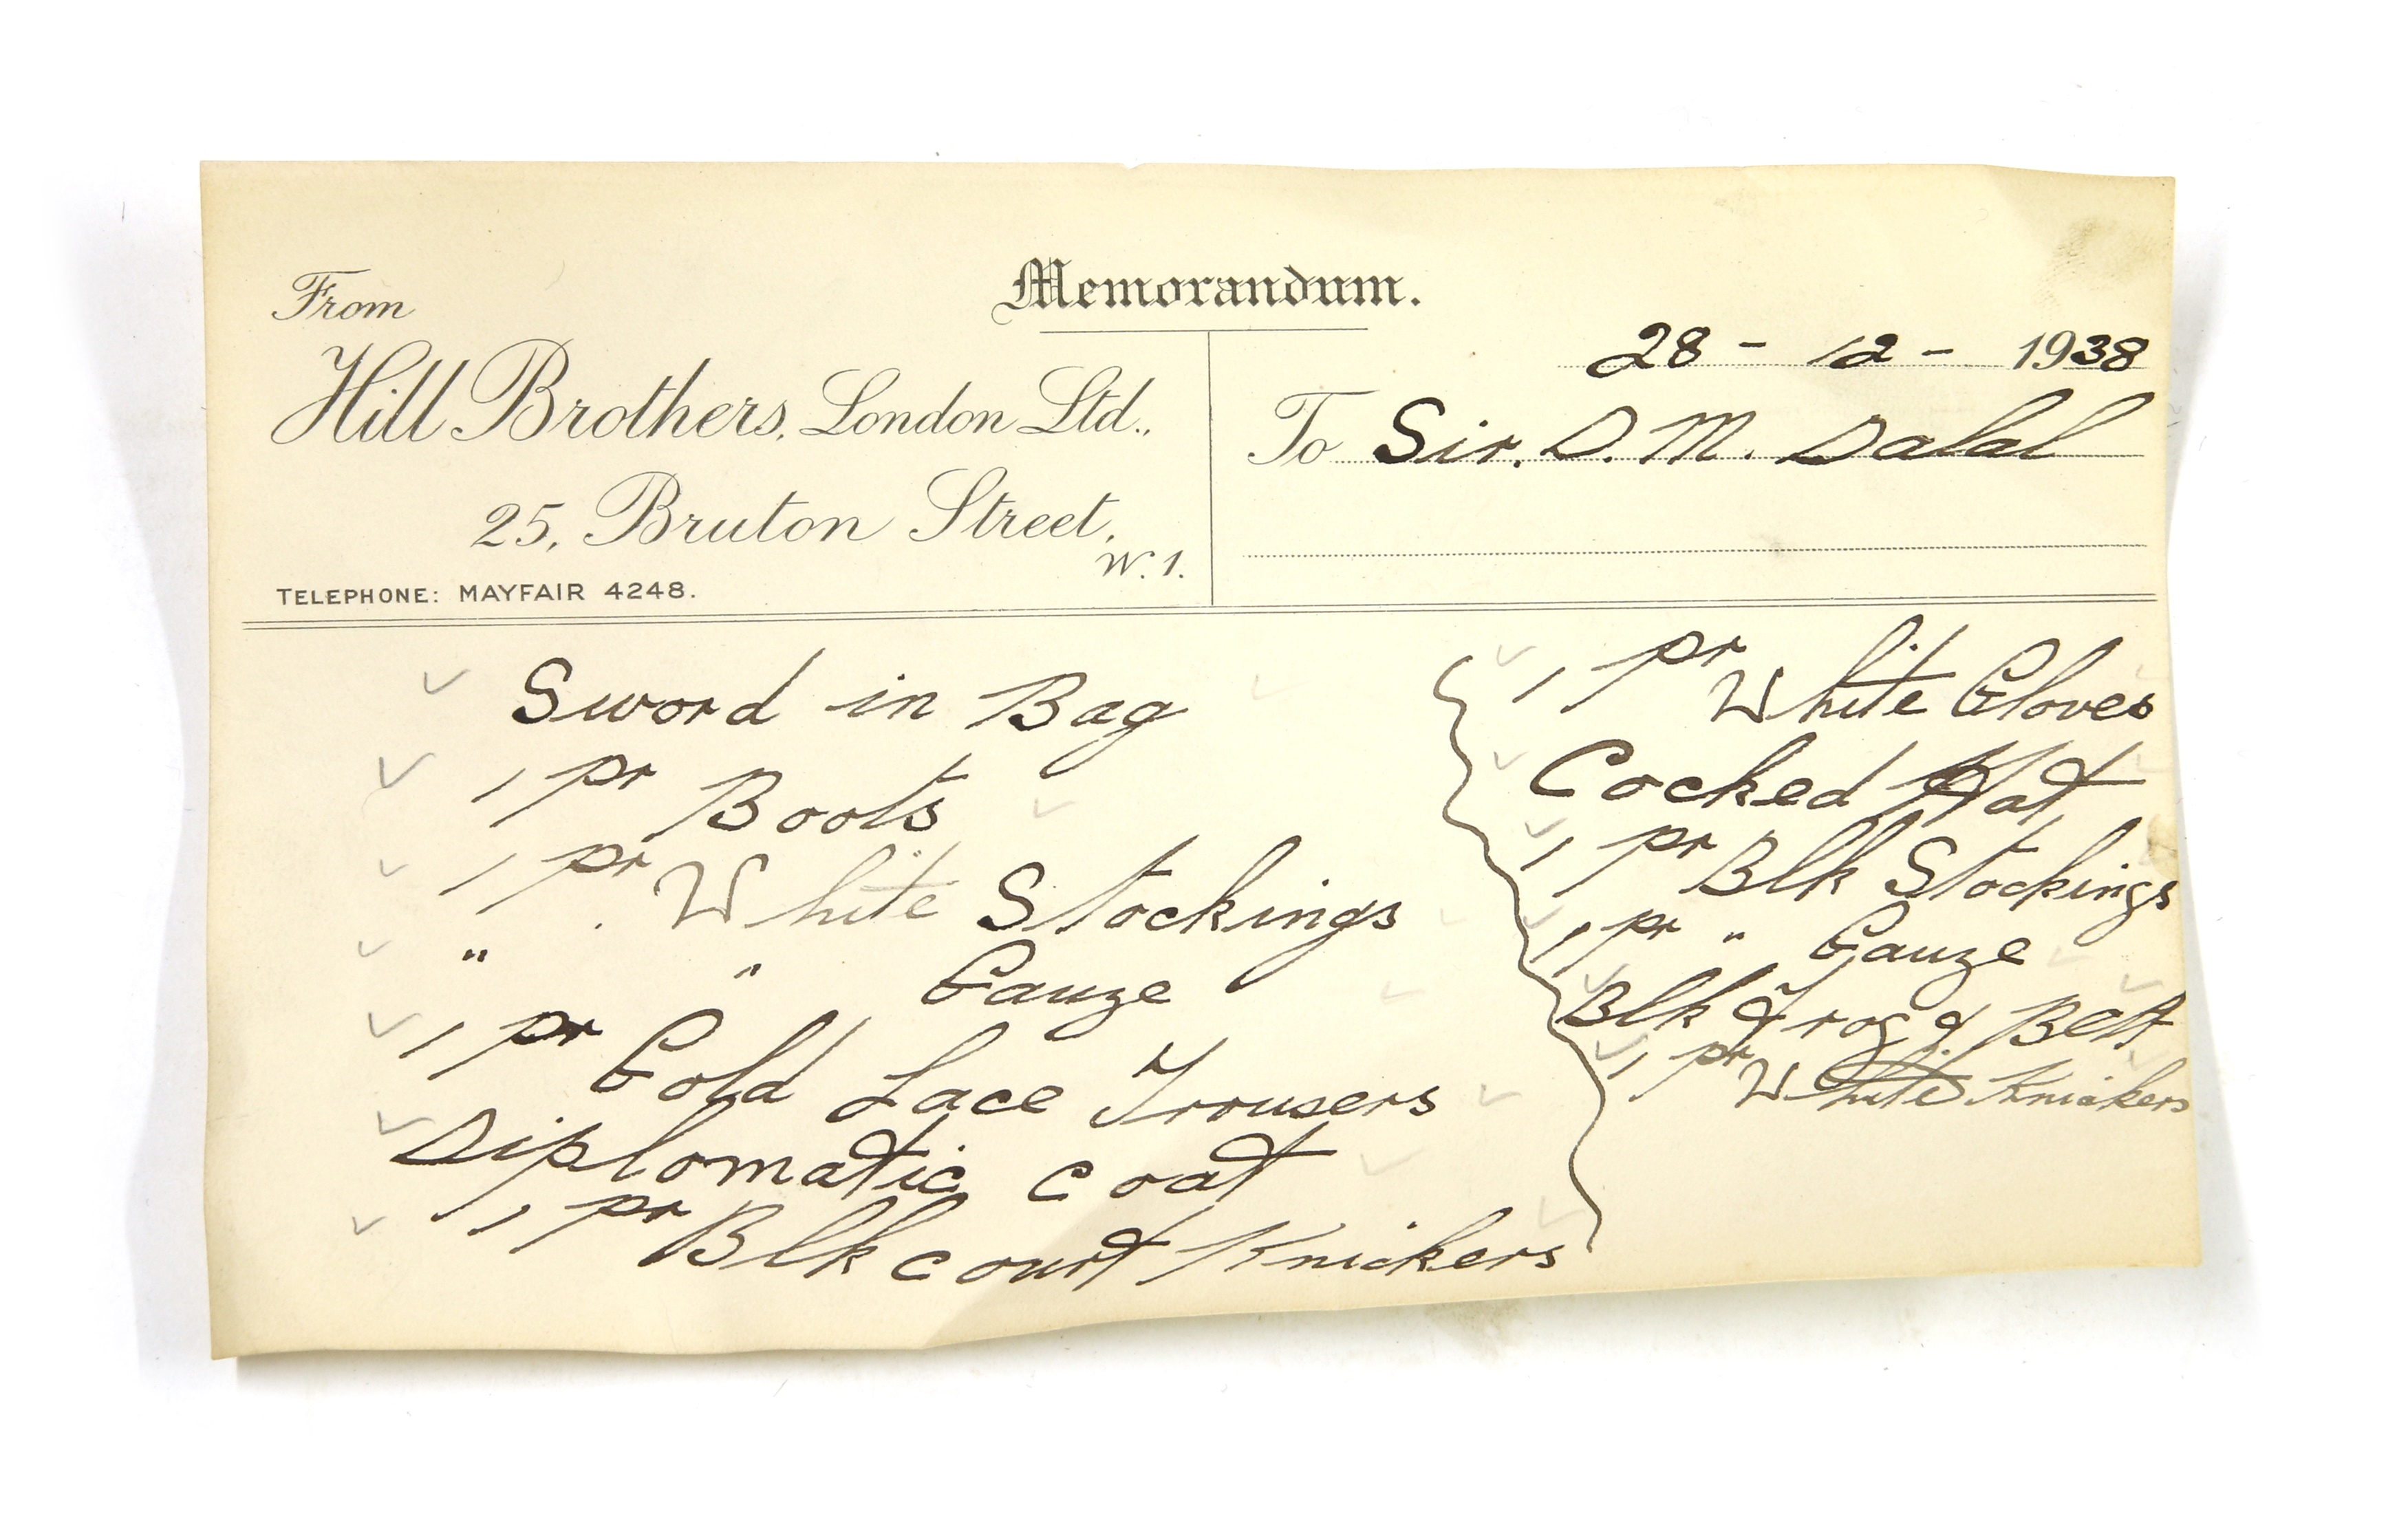 Memorandum.
From
Hill Brothers, London Ltd.,
25, Bruton Street,
W. 1.
TELEPHONE: MAYFAIR 4248.
28 - 12 - 1938
To Sir. D. M. Dalal
Sword in Bag
1 pr Boots
1 pr White Stockings
" " Gauze
1 pr Gold Lace Trousers
Diplomatic Coat
1 pr Blk Court Knickers
1 pr White Gloves
Cocked Hat
1 pr Blk Stockings
1 pr " Gauze
Blk Frog & Belt
1 pr White Knickers